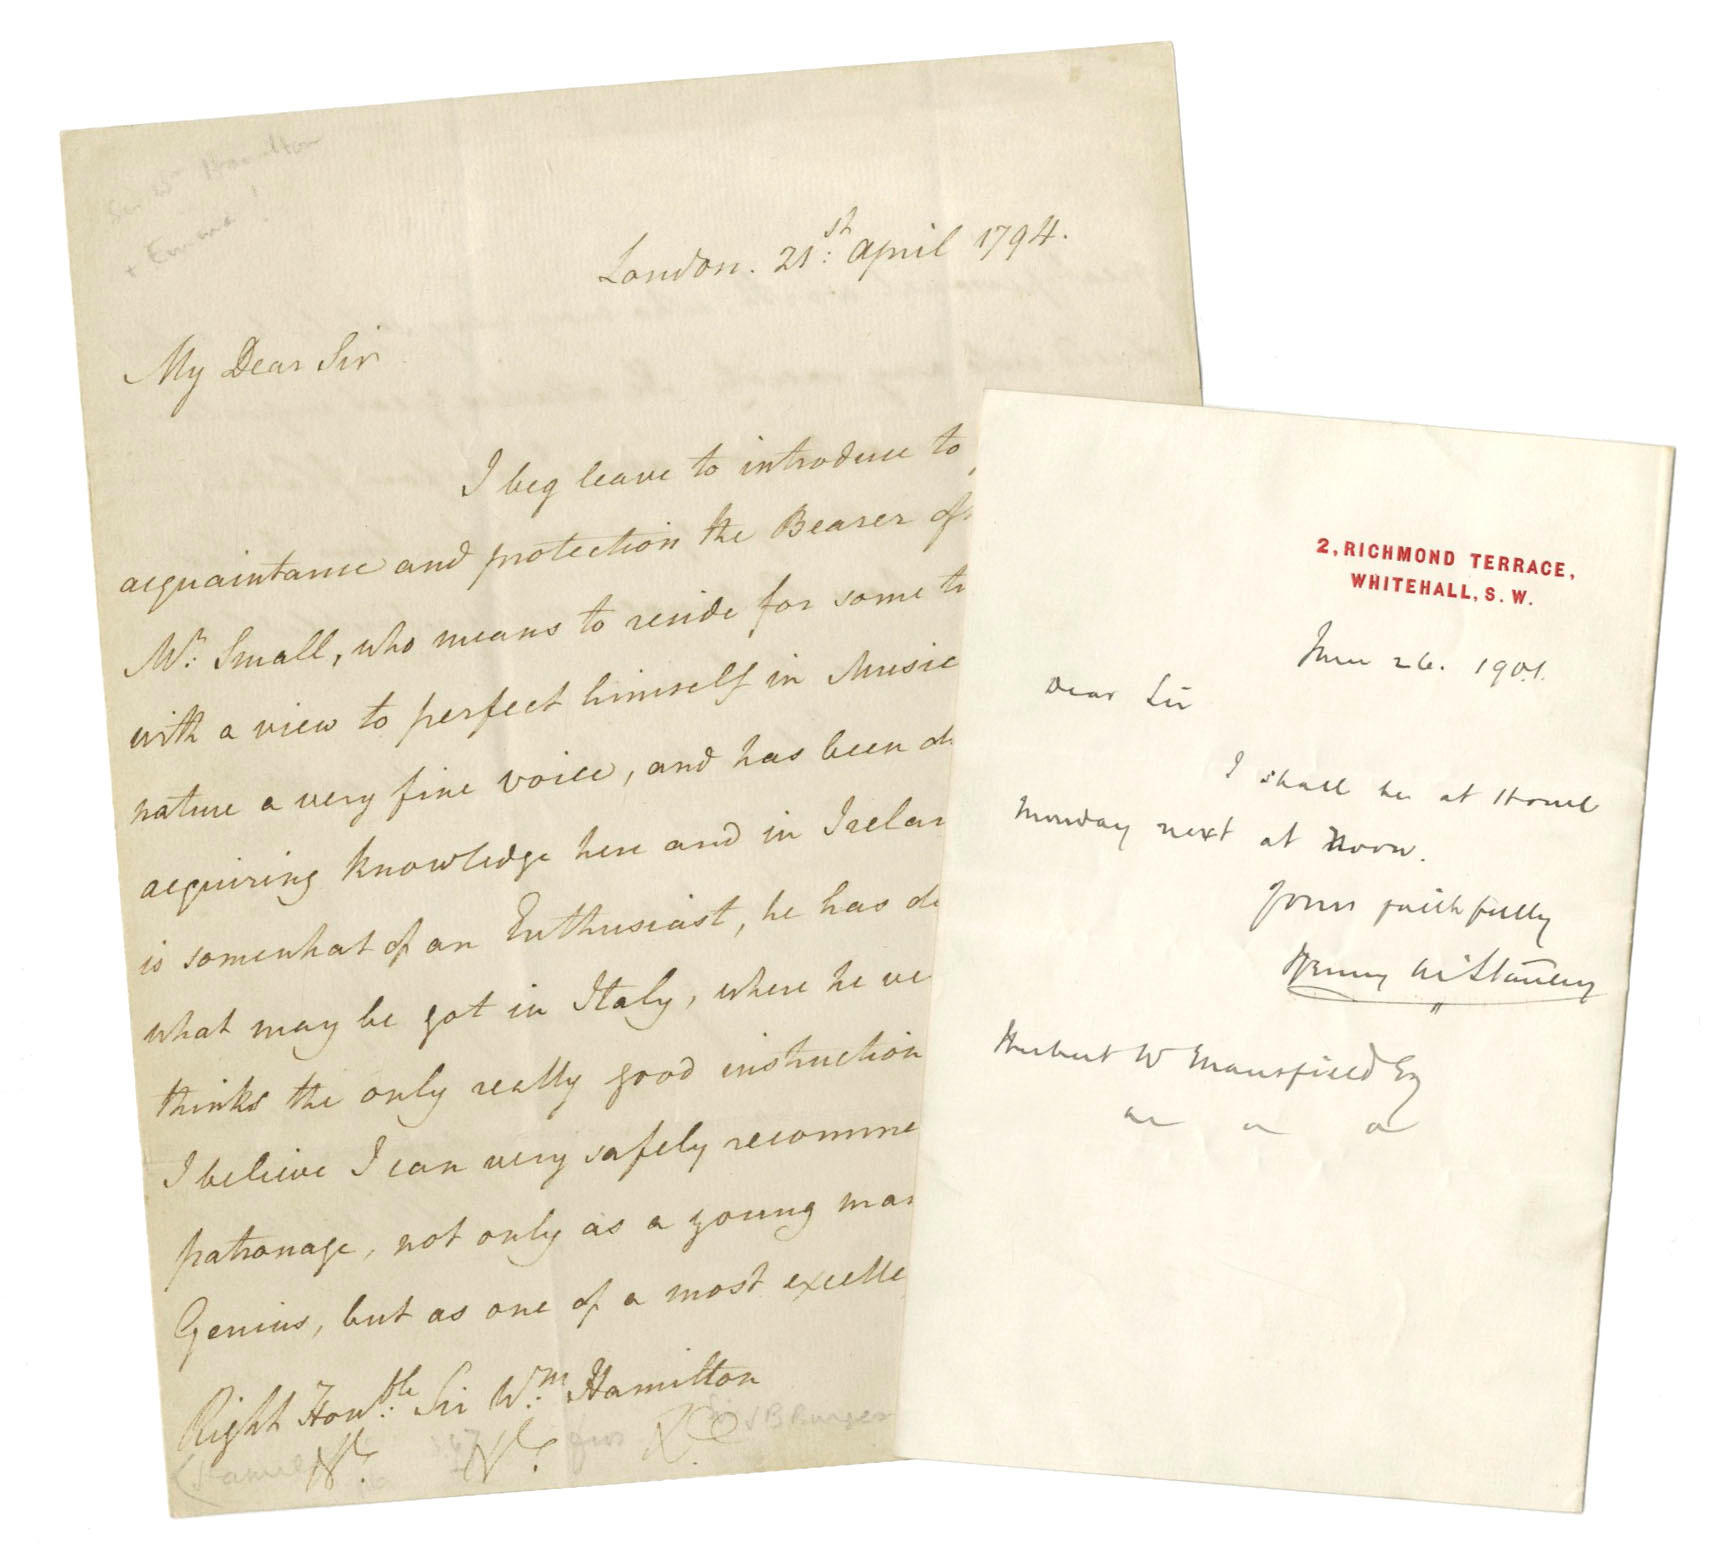 Sir Wm Hamilton
+ Emma!
London. 21st: April 1794.
My Dear Sir
I beg leave to introduce to
acquaintance and protection the Bearer of
Mr: Small, who means to reside for some
with a view to perfect himself in Music
nature a very fine voice, and has been
acquiring knowledge here and in Irelan
is somewhat of an Enthusiast, he has
what may be got in Italy, where he ve
thinks the only really good instruction
I believe I can very safely recomme
patronage, not only as a young man
Genius, but as one of a most excelle
Right Honble: Sir Wm: Hamilton
from J B Burges
2, RICHMOND TERRACE,
WHITEHALL, S. W.
June 26. 1901.
Dear Sir
I shall be at Home
Monday next at Noon.
Yours faithfully
Henry M Stanley
Herbert W Mansfield Esq